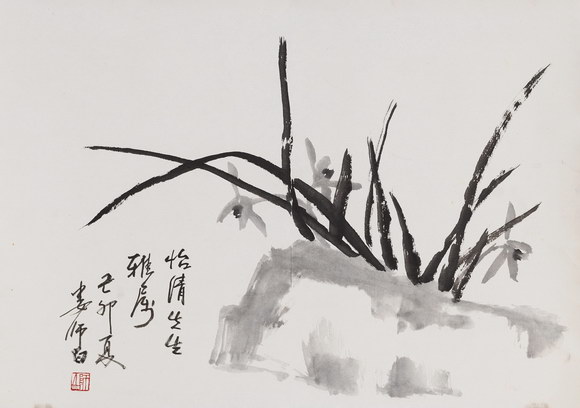 怡清先生
雅属
己卯夏
娄师白